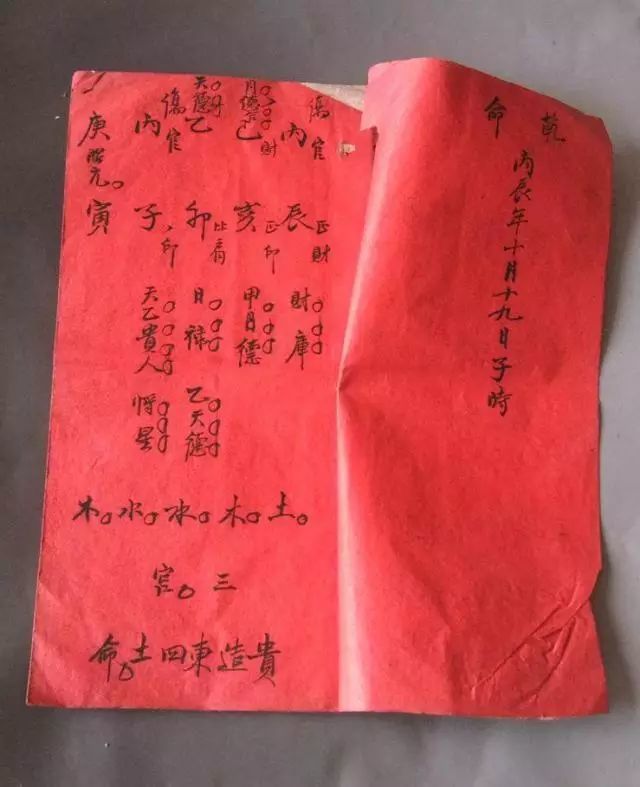 乾命
丙辰年十月十九日子時
傷官
丙辰
正財
財庫
月德合
財
己亥
正印
甲月德
天德
乙卯
比肩
日祿
乙天德
傷官
丙子
印
天乙貴人
將星
庚寅
胎元
土木水水木
三官
貴造東四土命